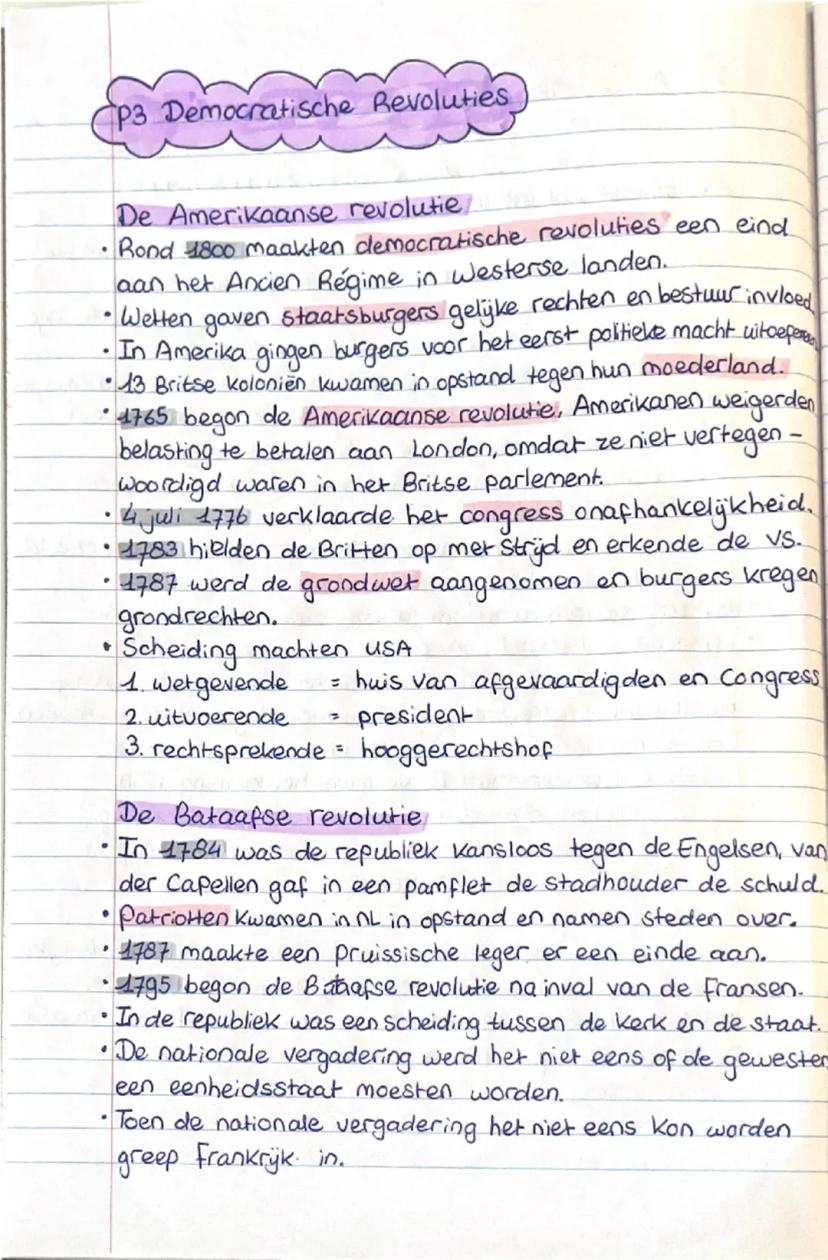 p3 Democratische Revoluties
De Amerikaanse revolutie
• Rond 1800 maakten democratische revoluties een eind
aan het Ancien Régime in Westerse landen.
• Wetten gaven staatsburgers gelijke rechten en bestuur invloed
• In Amerika gingen burgers voor het eerst politieke macht uitoefenen
• 13 Britse koloniën kwamen in opstand tegen hun moederland.
• 1765 begon de Amerikaanse revolutie, Amerikanen weigerden
belasting te betalen aan London, omdat ze niet vertegen-
woordigd waren in het Britse parlement.
• 4 juli 1776 verklaarde het congress onafhankelijkheid.
• 1783 hielden de Britten op met strijd en erkende de VS.
• 1787 werd de grondwet aangenomen en burgers kregen
grondrechten.
• Scheiding machten USA
1. wetgevende = huis van afgevaardigden en Congress
2. uitvoerende = president
3. rechtsprekende = hooggerechtshof
De Bataafse revolutie
• In 1784 was de republiek kansloos tegen de Engelsen, van
der Capellen gaf in een pamflet de stadhouder de schuld.
• Patriotten kwamen in NL in opstand en namen steden over.
• 1787 maakte een Pruissische leger er een einde aan.
• 1795 begon de Bataafse revolutie na inval van de Fransen.
• In de republiek was een scheiding tussen de kerk en de staat.
• De nationale vergadering werd het niet eens of de gewesten
een eenheidsstaat moesten worden.
• Toen de nationale vergadering het niet eens kon worden
greep Frankrijk in.